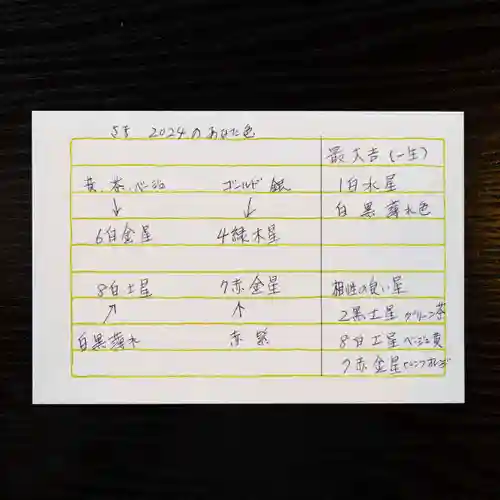 2024のあなた色
最大吉(一生)
黄、茶、ベージュ ゴールド 銀
1白水星
白 黒 薄水色
6白金星 4緑木星
8白土星 7赤金星
相性の良い星
2黒土星 グリーン茶
白黒薄水 赤 紫
8白土星 ベージュ黄
7赤金星 ピンクオレンジ